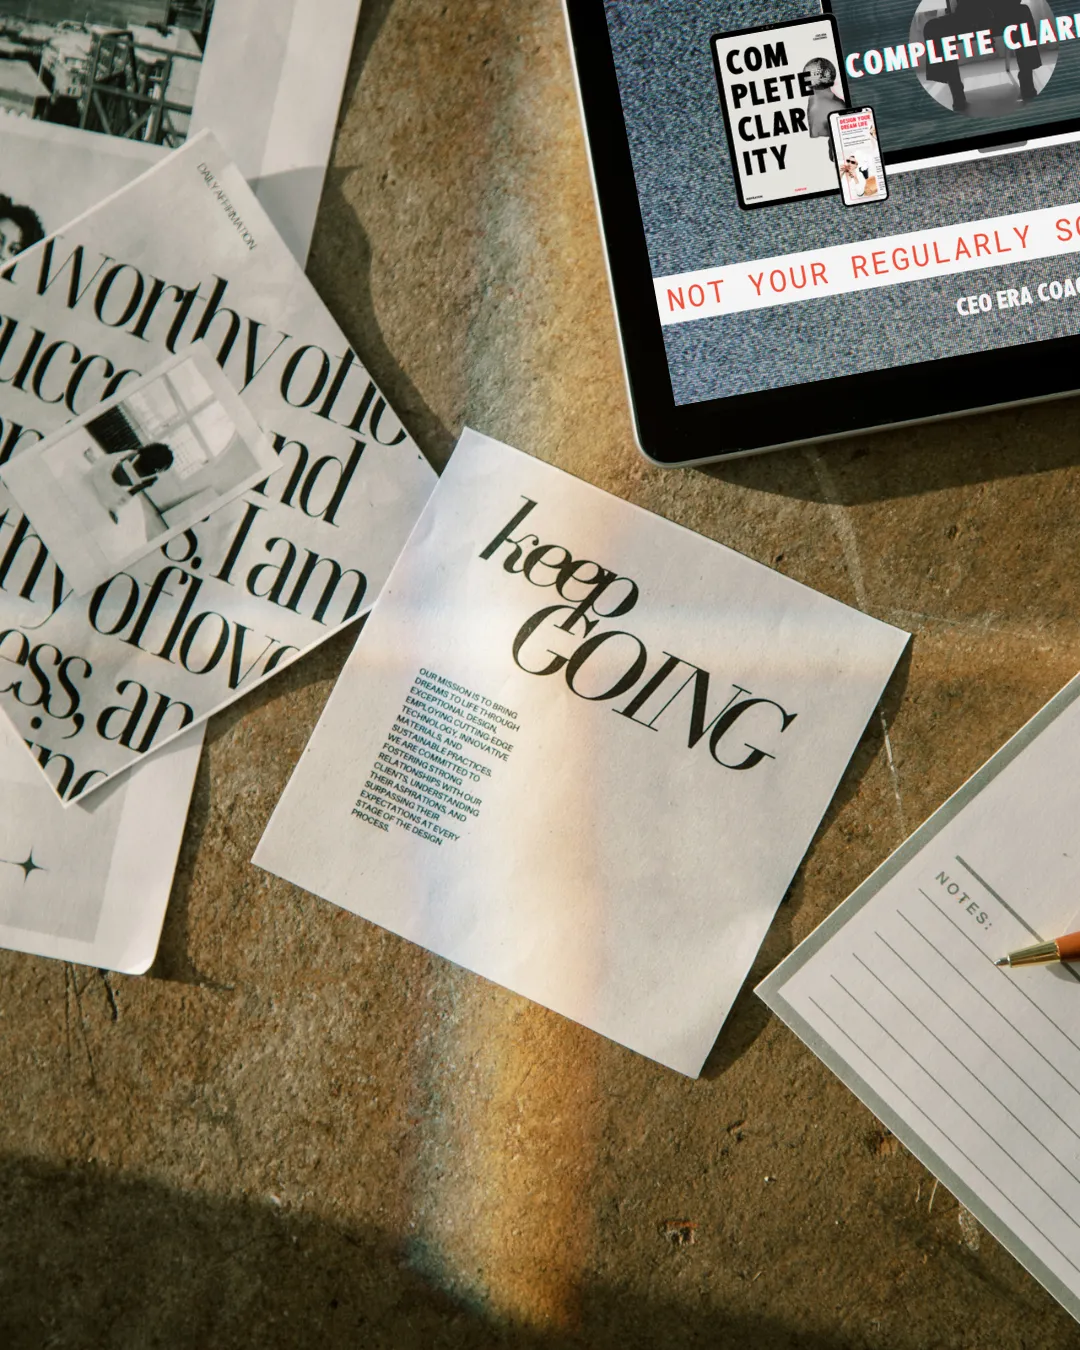 DAILY AFFIRMATION
worthy of
and
s. I am
of love
ess, an
keep
GOING
OUR MISSION IS TO BRING
DREAMS TO LIFE THROUGH
EXCEPTIONAL DESIGN,
EMPLOYING CUTTING-EDGE
TECHNOLOGY, INNOVATIVE
MATERIALS, AND
SUSTAINABLE PRACTICES.
WE ARE COMMITTED TO
FOSTERING STRONG
RELATIONSHIPS WITH OUR
CLIENTS, UNDERSTANDING
THEIR ASPIRATIONS, AND
SURPASSING THEIR
EXPECTATIONS AT EVERY
STAGE OF THE DESIGN
PROCESS.
COM
PLETE
CLAR
ITY
DESIGN YOUR
DREAM LIFE
COMPLETE CLAR
NOT YOUR REGULARLY SC
CEO ERA COAC
NOTES: